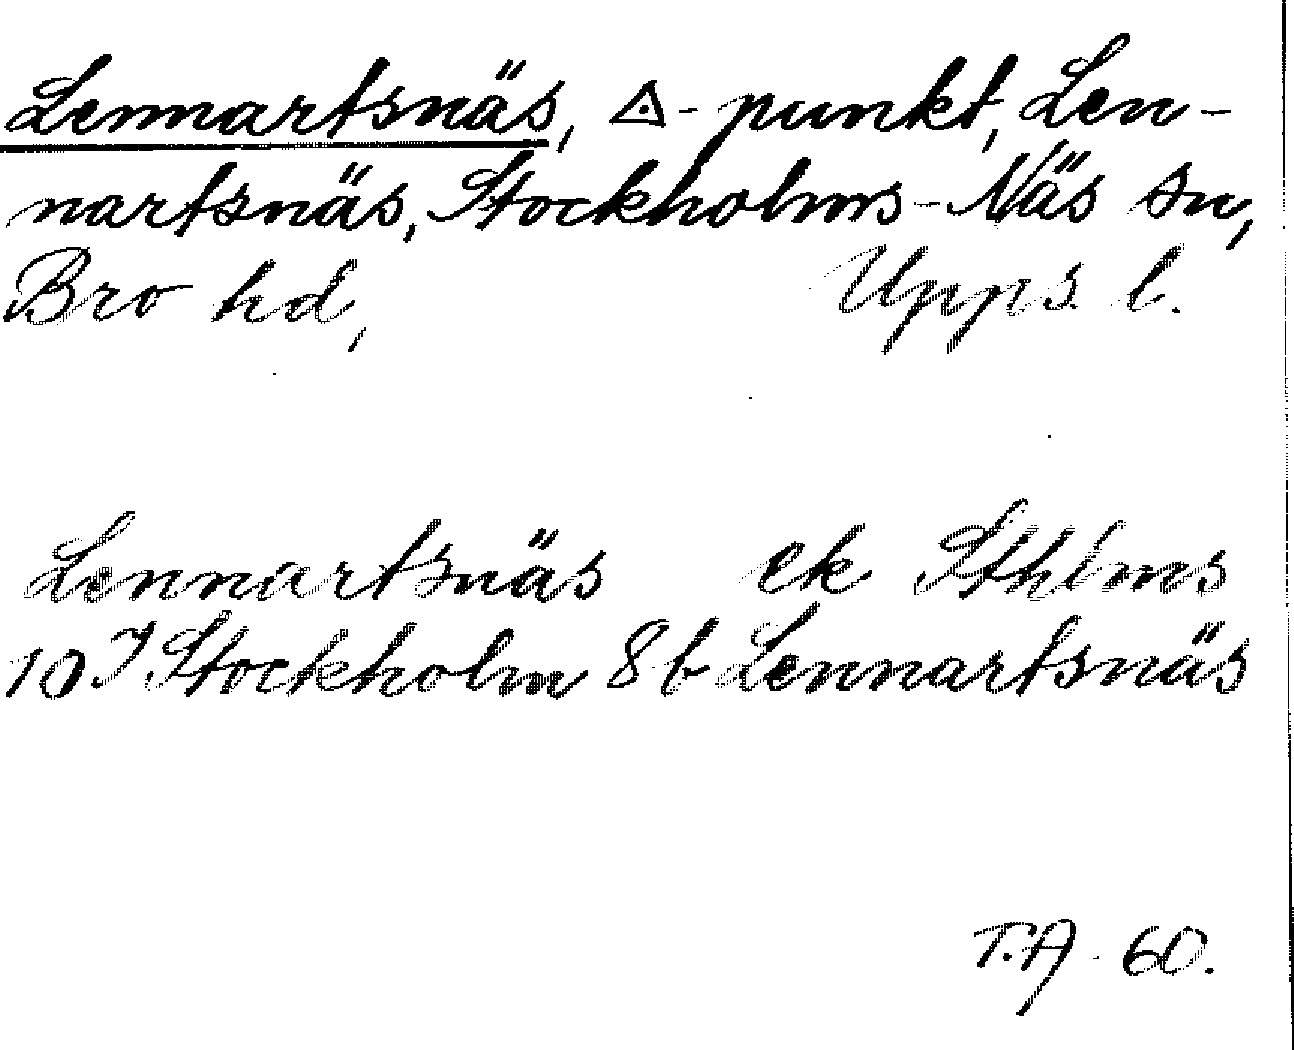 Lennartsnäs, △-punkt, Len-
nartsnäs, Stockholms-Näs sn,
Bro hd, Upps. l.
Lennartsnäs ek Sthlms
10 I Stockholm 8b Lennartsnäs
T.A. 60.